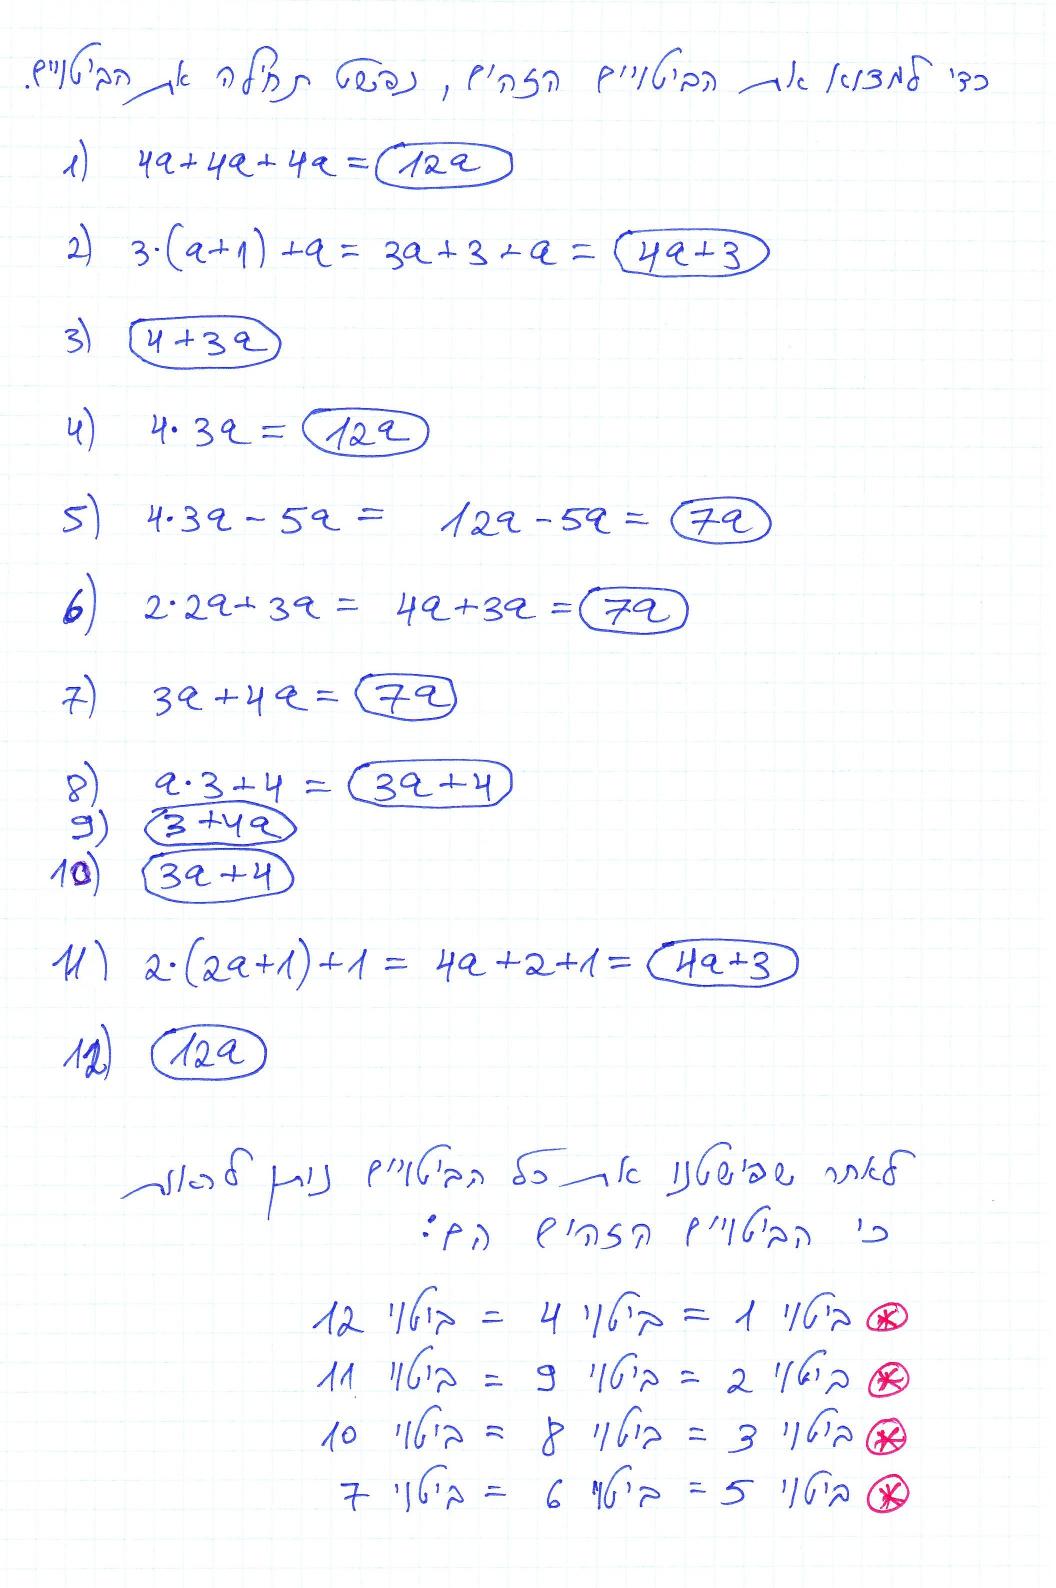 כדי למצוא את הביטויים הזהים, נפשט תחילה את הביטויים.
1) 4a+4a+4a=12a
2) 3·(a+1)+a=3a+3+a=4a+3
3) 4+3a
4) 4·3a=12a
5) 4·3a-5a= 12a-5a=7a
6) 2·2a+3a= 4a+3a=7a
7) 3a+4a=7a
8) a·3+4=3a+4
9) 3+4a
10) 3a+4
11) 2·(2a+1)+1=4a+2+1=4a+3
12) 12a
לאחר שפישטנו את כל הביטויים ניתן לראות
כי הביטויים הזהים הם:
ביטוי 1 = ביטוי 4 = ביטוי 12
ביטוי 2 = ביטוי 9 = ביטוי 11
ביטוי 3 = ביטוי 8 = ביטוי 10
ביטוי 5 = ביטוי 6 = ביטוי 7